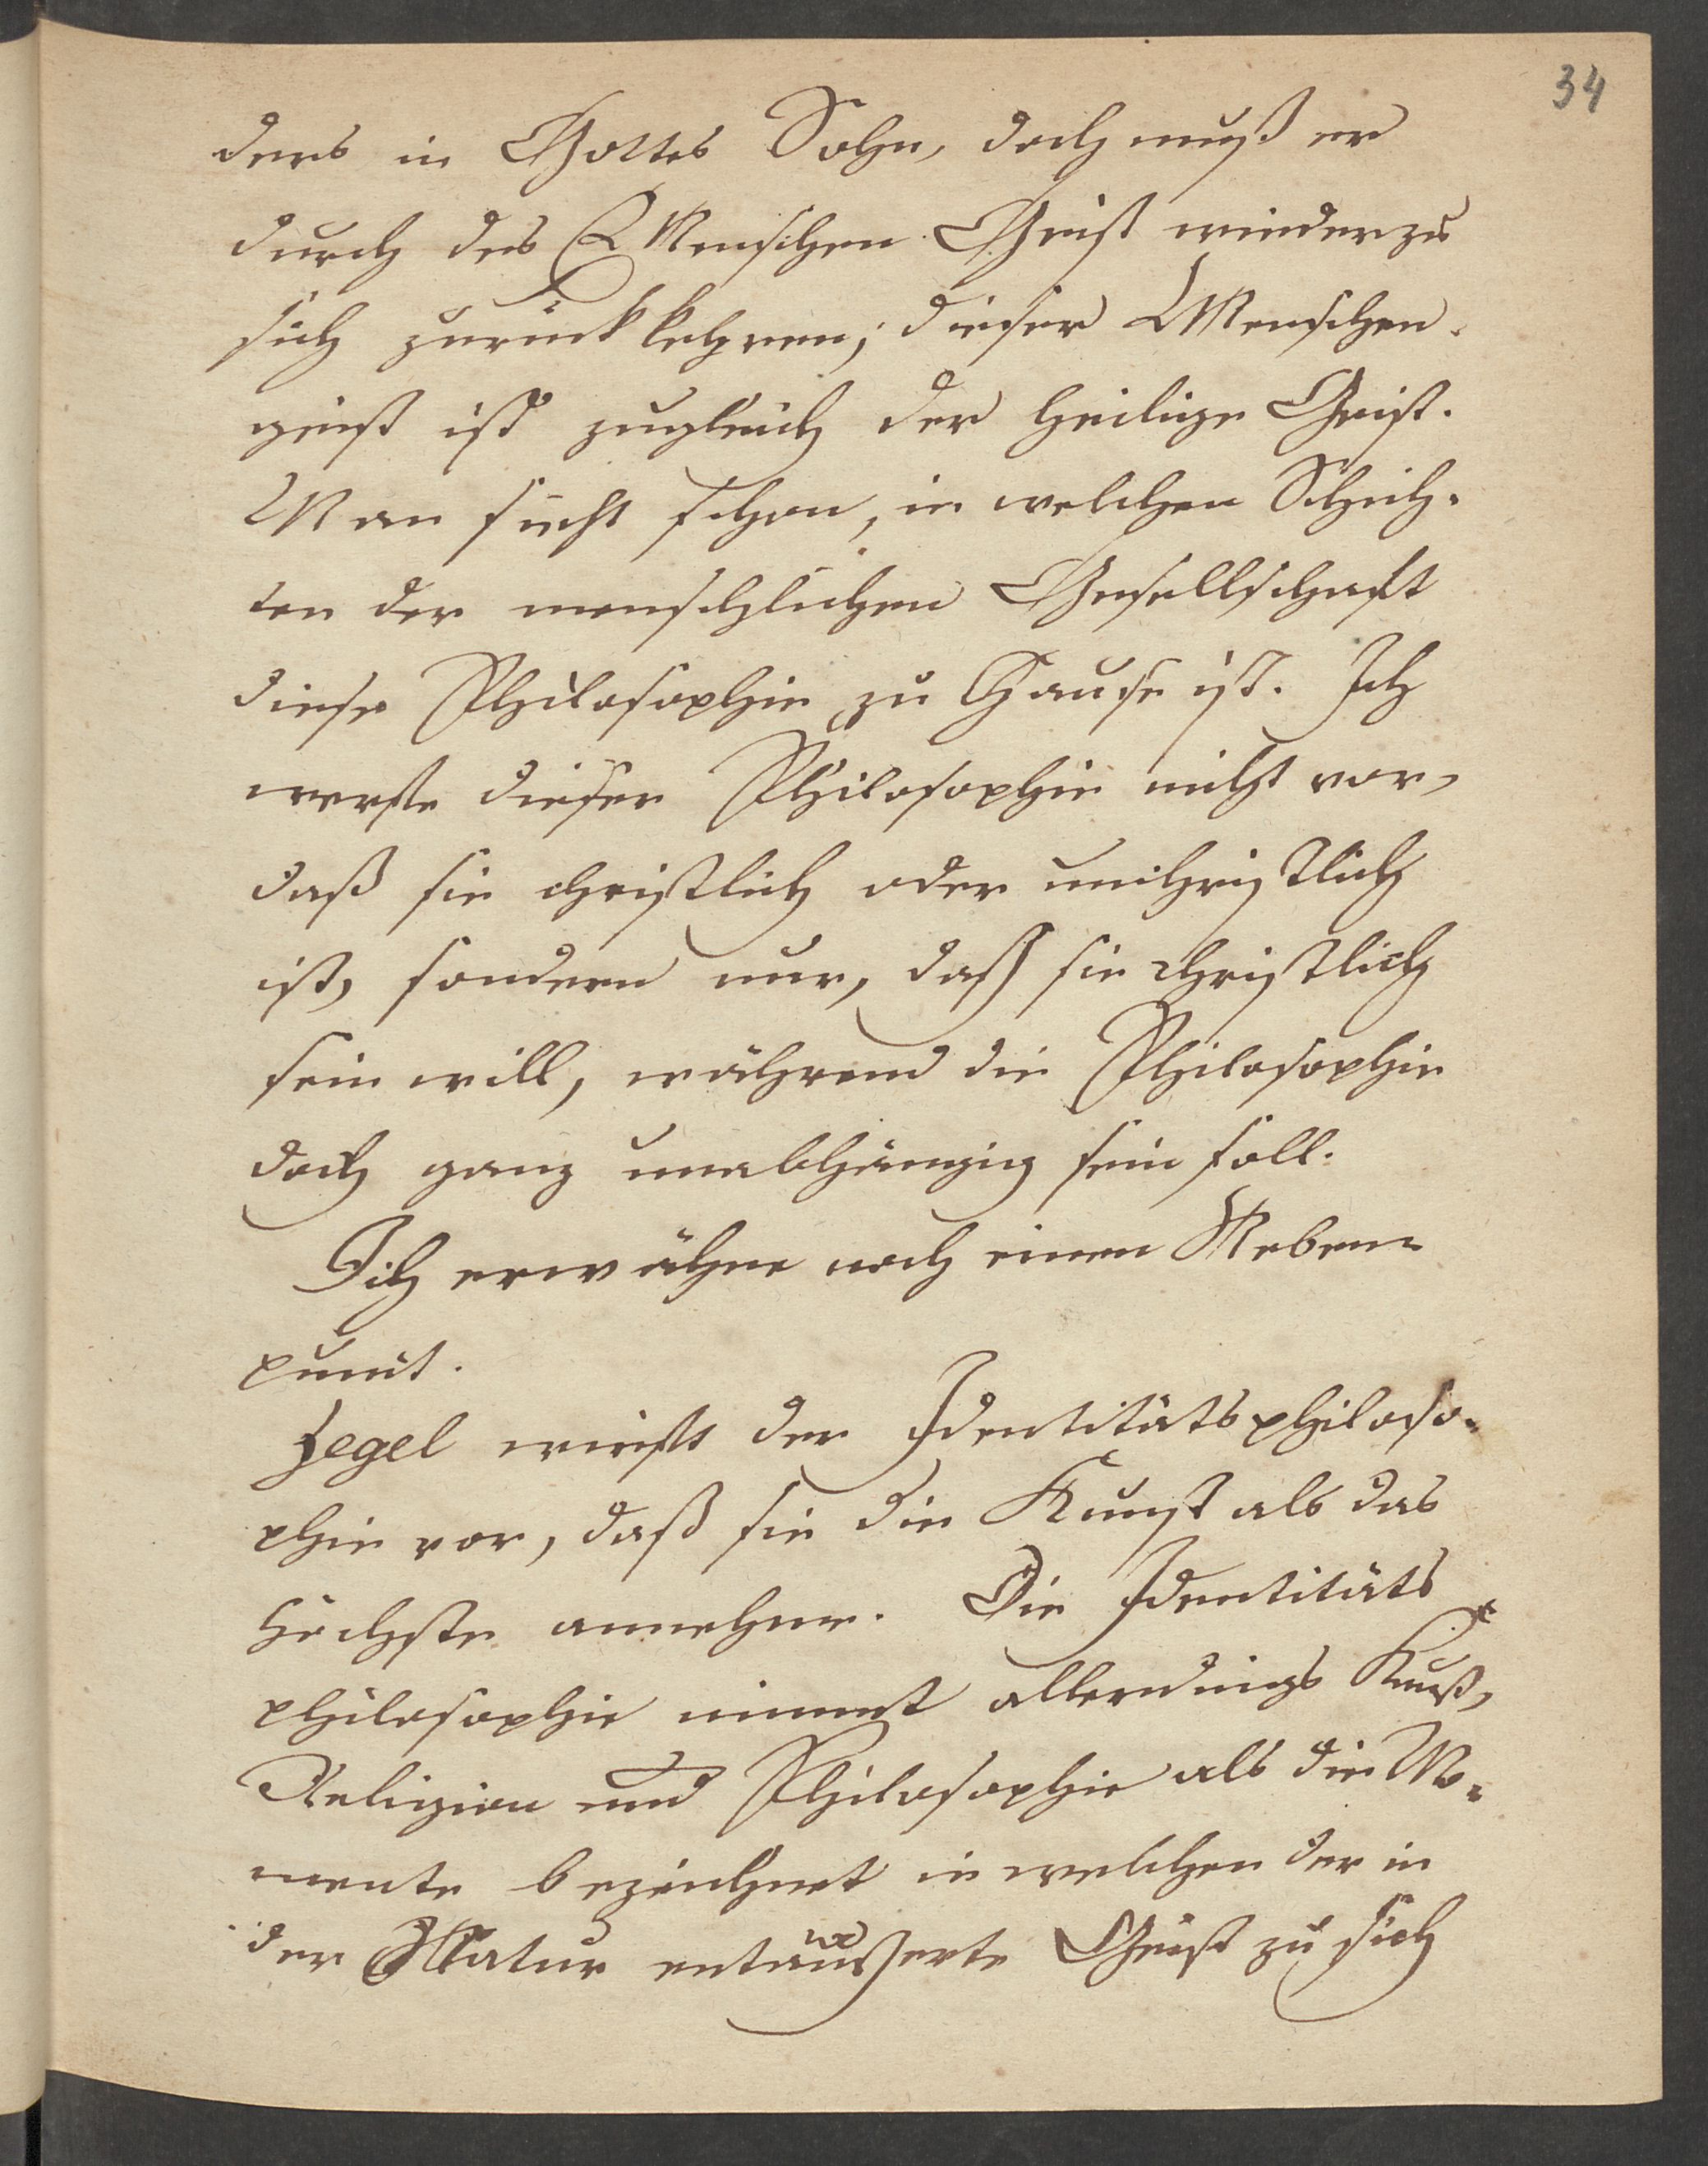 34
ders in Gottes Sohn, doch muß er
durch des Menschen Geist wieder zu
sich zurückkehren; dieser Menschen-
geist ist zugleich der heilige Geist.
Man sieht schon, in welchen Schich-
ten der menschlichen Gesellschaft
diese Philosophie zu Hause ist. Ich
werfe dieser Philosophie nicht vor,
daß sie christlich oder unchristlich
ist, sondern nur, daß sie christlich
sein will, während die Philosophie
doch ganz unabhängig sein soll.
Ich erwähne noch einen Neben-
punct.
Hegel wirft der Identitätsphiloso-
phie vor, daß sie die Kunst als das
Höchste annehme. Die Identitäts
philosophie nimmt allerdings Kunst,
Religion und Philosophie als die Mo-
mente bezeichnet in welchen der in
der Natur entäußerte Geist zu sich